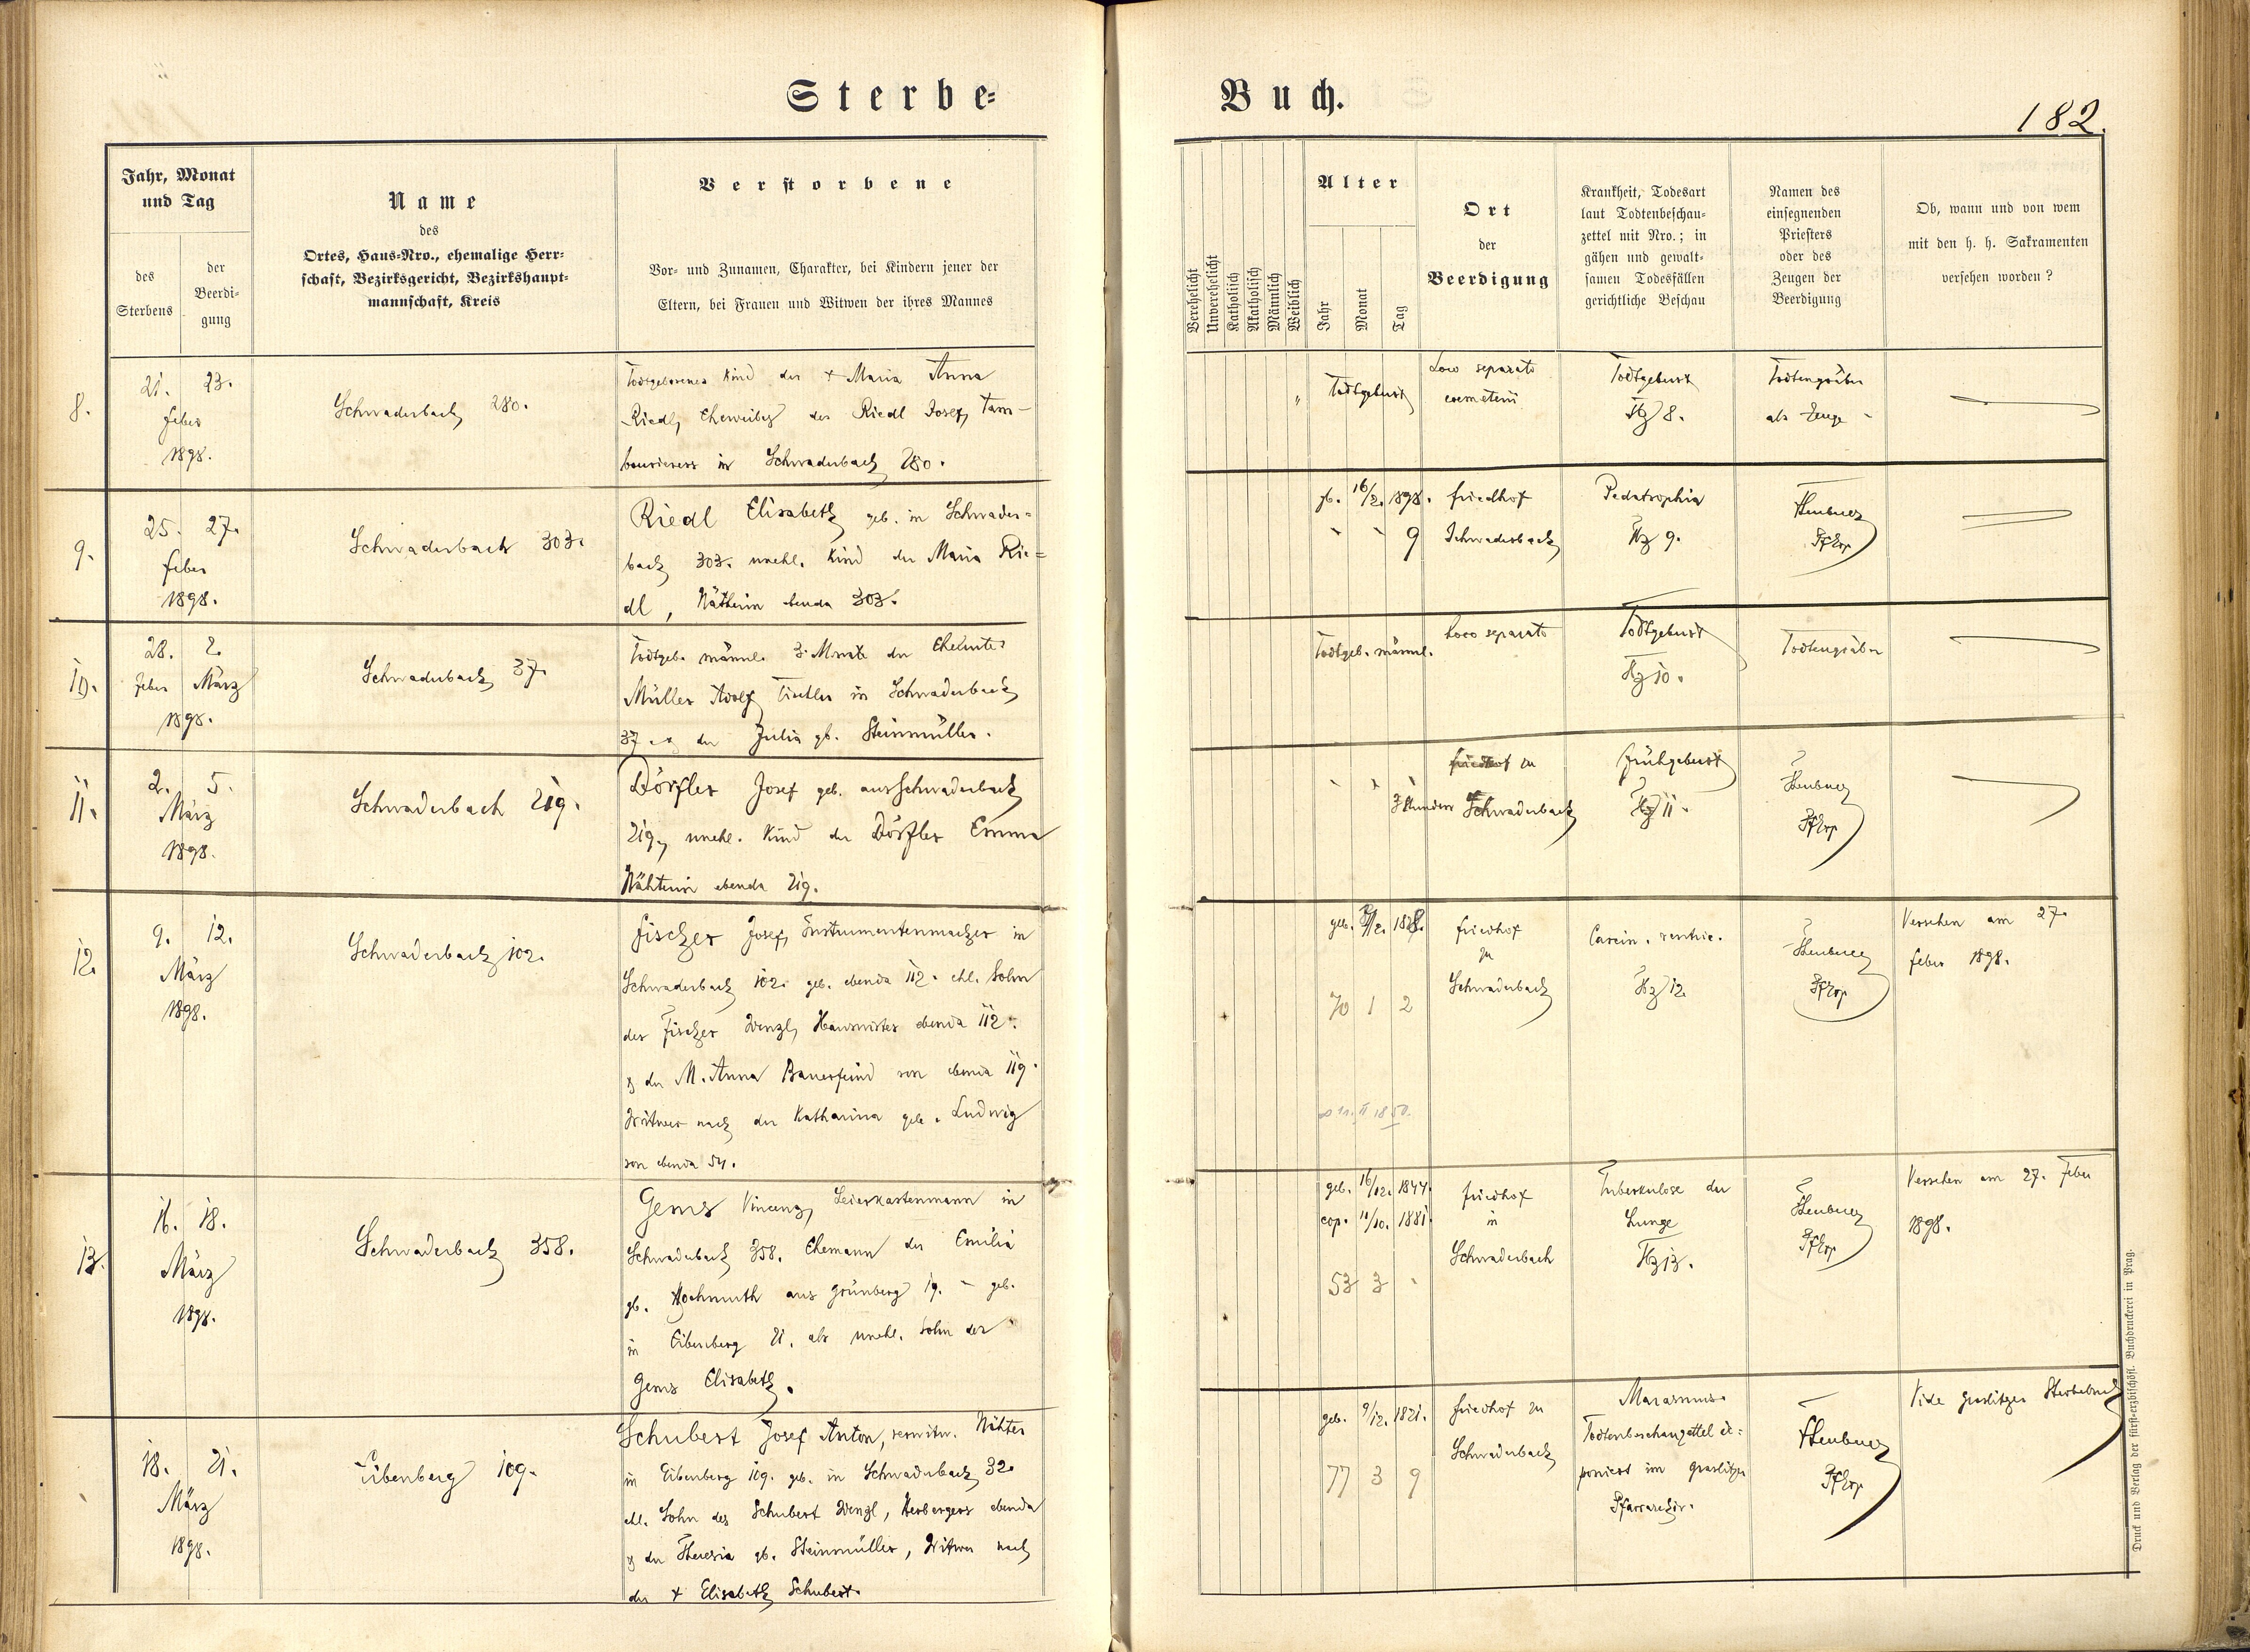 Sterbe-
Buch.
182.
Jahr, Monat
und Tag
des
Sterbens
der
Beerdi-
gung
Name
des
Ortes, Haus-Nro., ehemalige Herr-
schaft, Bezirksgericht, Bezirkshaupt-
mannschaft, Kreis
Verstorbene
Vor- und Zunamen, Charakter, bei Kindern jener der
Eltern, bei Frauen und Witwen der ihres Mannes
Verehelicht
Unverehelicht
Katholisch
Akatholisch
Männlich
Weiblich
Alter
Jahr
Monat
Tag
Ort
der
Beerdigung
Krankheit, Todesart
laut Todtenbeschau-
zettel mit Nro.; in
gähen und gewalt-
samen Todesfällen
gerichtliche Beschau
Namen des
einsegnenden
Priesters
oder des
Zeugen der
Beerdigung
Ob, wann und von wem
mit den h. h. Sakramenten
versehen worden?
8.
21. 23.
Feber
1898.
Schwaderbach 280.
Todtgeborenes Kind der + Maria Anna
Riedl, Eheweibes des Riedl Josef, Tam-
bourierers in Schwaderbach 280.
"
Todtgeburt
Loco separato
coemeterii
Todtgeburt
Hz 8.
Todtengräber
als Zeuge
9.
25. 27.
Feber
1898.
Schwaderbach 303.
Riedl Elisabeth geb. in Schwader-
bach 303. unehl. Kind der Maria Rie-
dl, Nätherin ebenda 303.
gb. 16/2. 1898.
9
Friedhof
Schwaderbach
Pedatrophia
Hz 9.
10.
28. 2.
Feber März
1898.
Schwaderbach 37.
Todtgeb. männl. 3. Monate der Eheleute
Müller Adolf Tischler in Schwaderbach
37 der Julia gb. Steinmüller.
Todtgeb. männl.
Loco separato
Todtgeburt
Hz 10.
Todtengräber
11.
2. 5.
März
1898.
Schwaderbach 219.
Dörfler Josef geb. aus Schwaderbach
219, unehl. Kind der Dörfler Emma
Nähterin ebenda 219.
3 Stunden
Friedhof zu
Schwaderbach
Frühgeburt
Hz 11.
12.
9. 12.
März
1898.
Schwaderbach 102.
Fischer Josef, Instrumentenmacher in
Schwaderbach 102. geb. ebenda 112. ehl. Sohn
des Fischer Wenzl, Hauswirtes ebenda 112.
& der M. Anna Bauerfeind von ebenda 119.
Witwer nach der Katharina geb. Ludwig
von ebenda 54.
geb. 1828.
70 1 2
∞ 11. II 1850.
Friedhof
zu
Schwaderbach
Carcin. ventric.
Hz 12.
Versehen am 27.
Feber 1898.
13.
16. 18.
März
1898.
Schwaderbach 358.
Gems Vincenz, Leierkastenmann in
Schwaderbach 358. Ehemann der Emilia
gb. Hochmuth aus Grünberg 19. - geb.
in Eibenberg 21. als unehl. Sohn der
Gems Elisabeth.
geb. 16/12. 1844.
cop. 11/10. 1881.
53 3
Friedhof
in
Schwaderbach
Tuberkulose der
Lunge
Hz 13.
Versehen am 27. Feber
1898.
18. 21.
März
1898.
Eibenberg 109.
Schubert Josef Anton, verwitw. Nähter
in Eibenberg 109. geb. in Schwaderbach 32.
ehl. Sohn des Schubert Wenzl, Herbergers ebenda
& der Theresia gb. Steinmüller, Witwer nach
der + Elisabeth Schubert.
geb. 9/12. 1821.
77 3 9
Friedhof zu
Schwaderbach
Marasmus.
Todtenbeschauzettel de-
poniert im Graslitzer
Pfarrarchiv.
Vide Graslitzer Sterbebuch
Druck und Verlag der fürst-erzbischöfl. Buchdruckerei in Prag.